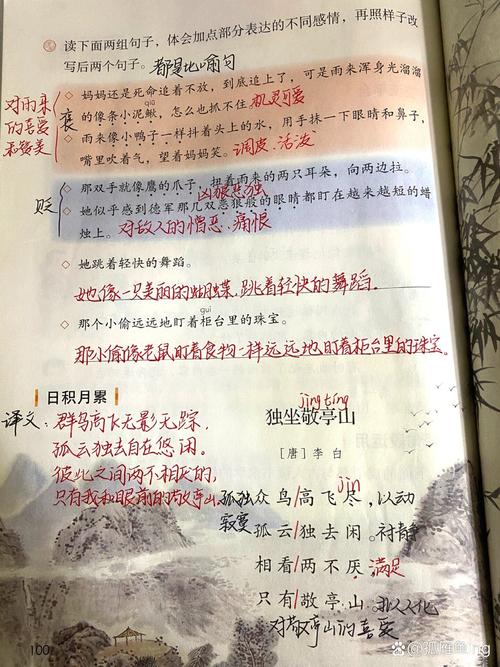 读下面两组句子，体会加点部分表达的不同感情，再照样子改
写后两个句子。都是比喻句
◇ 妈妈还是死命追着不放，到底追上了，可是雨来浑身光溜溜
qiū
的像条小泥鳅，怎么也抓不住。机灵可爱
◇ 雨来像小鸭子一样抖着头上的水，用手抹一下眼睛和鼻子，
嘴里吹着气，望着妈妈笑。调皮.活泼
对雨来
的喜爱
和赞美
褒
◇ 那双手就像鹰的爪子，扭着雨来的两只耳朵，向两边拉。
凶狠恶狠
◇ 她似乎感到德军那几双恶狼般的眼睛都盯在越来越短的蜡
烛上。对敌人的憎恶.痛恨
贬
◇ 她跳着轻快的舞蹈。
她像一只美丽的蝴蝶,跳着轻快的舞蹈.
guì
◇ 那个小偷远远地盯着柜台里的珠宝。
那小偷像老鼠盯着食物一样远远地盯着柜台里的珠宝。
日积月累
译文:群鸟高飞无影无踪,
孤云独去自在悠闲。
彼此之间两不相厌的,
只有我和眼前的敬亭山。
jìng tíng
独坐敬亭山
［唐］李 白
jìn
孤独 众鸟/高飞尽，以动
寂寞 孤云/独去闲。衬静
相看/两不厌，满足
只有/敬亭山。拟人化
对敬亭山的喜爱
100